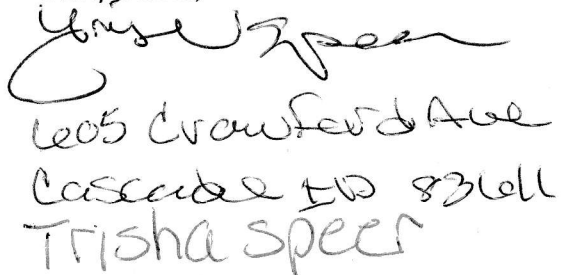 Trisha Speer
605 Crawford Ave
Cascade ID 83611
Trisha Speer